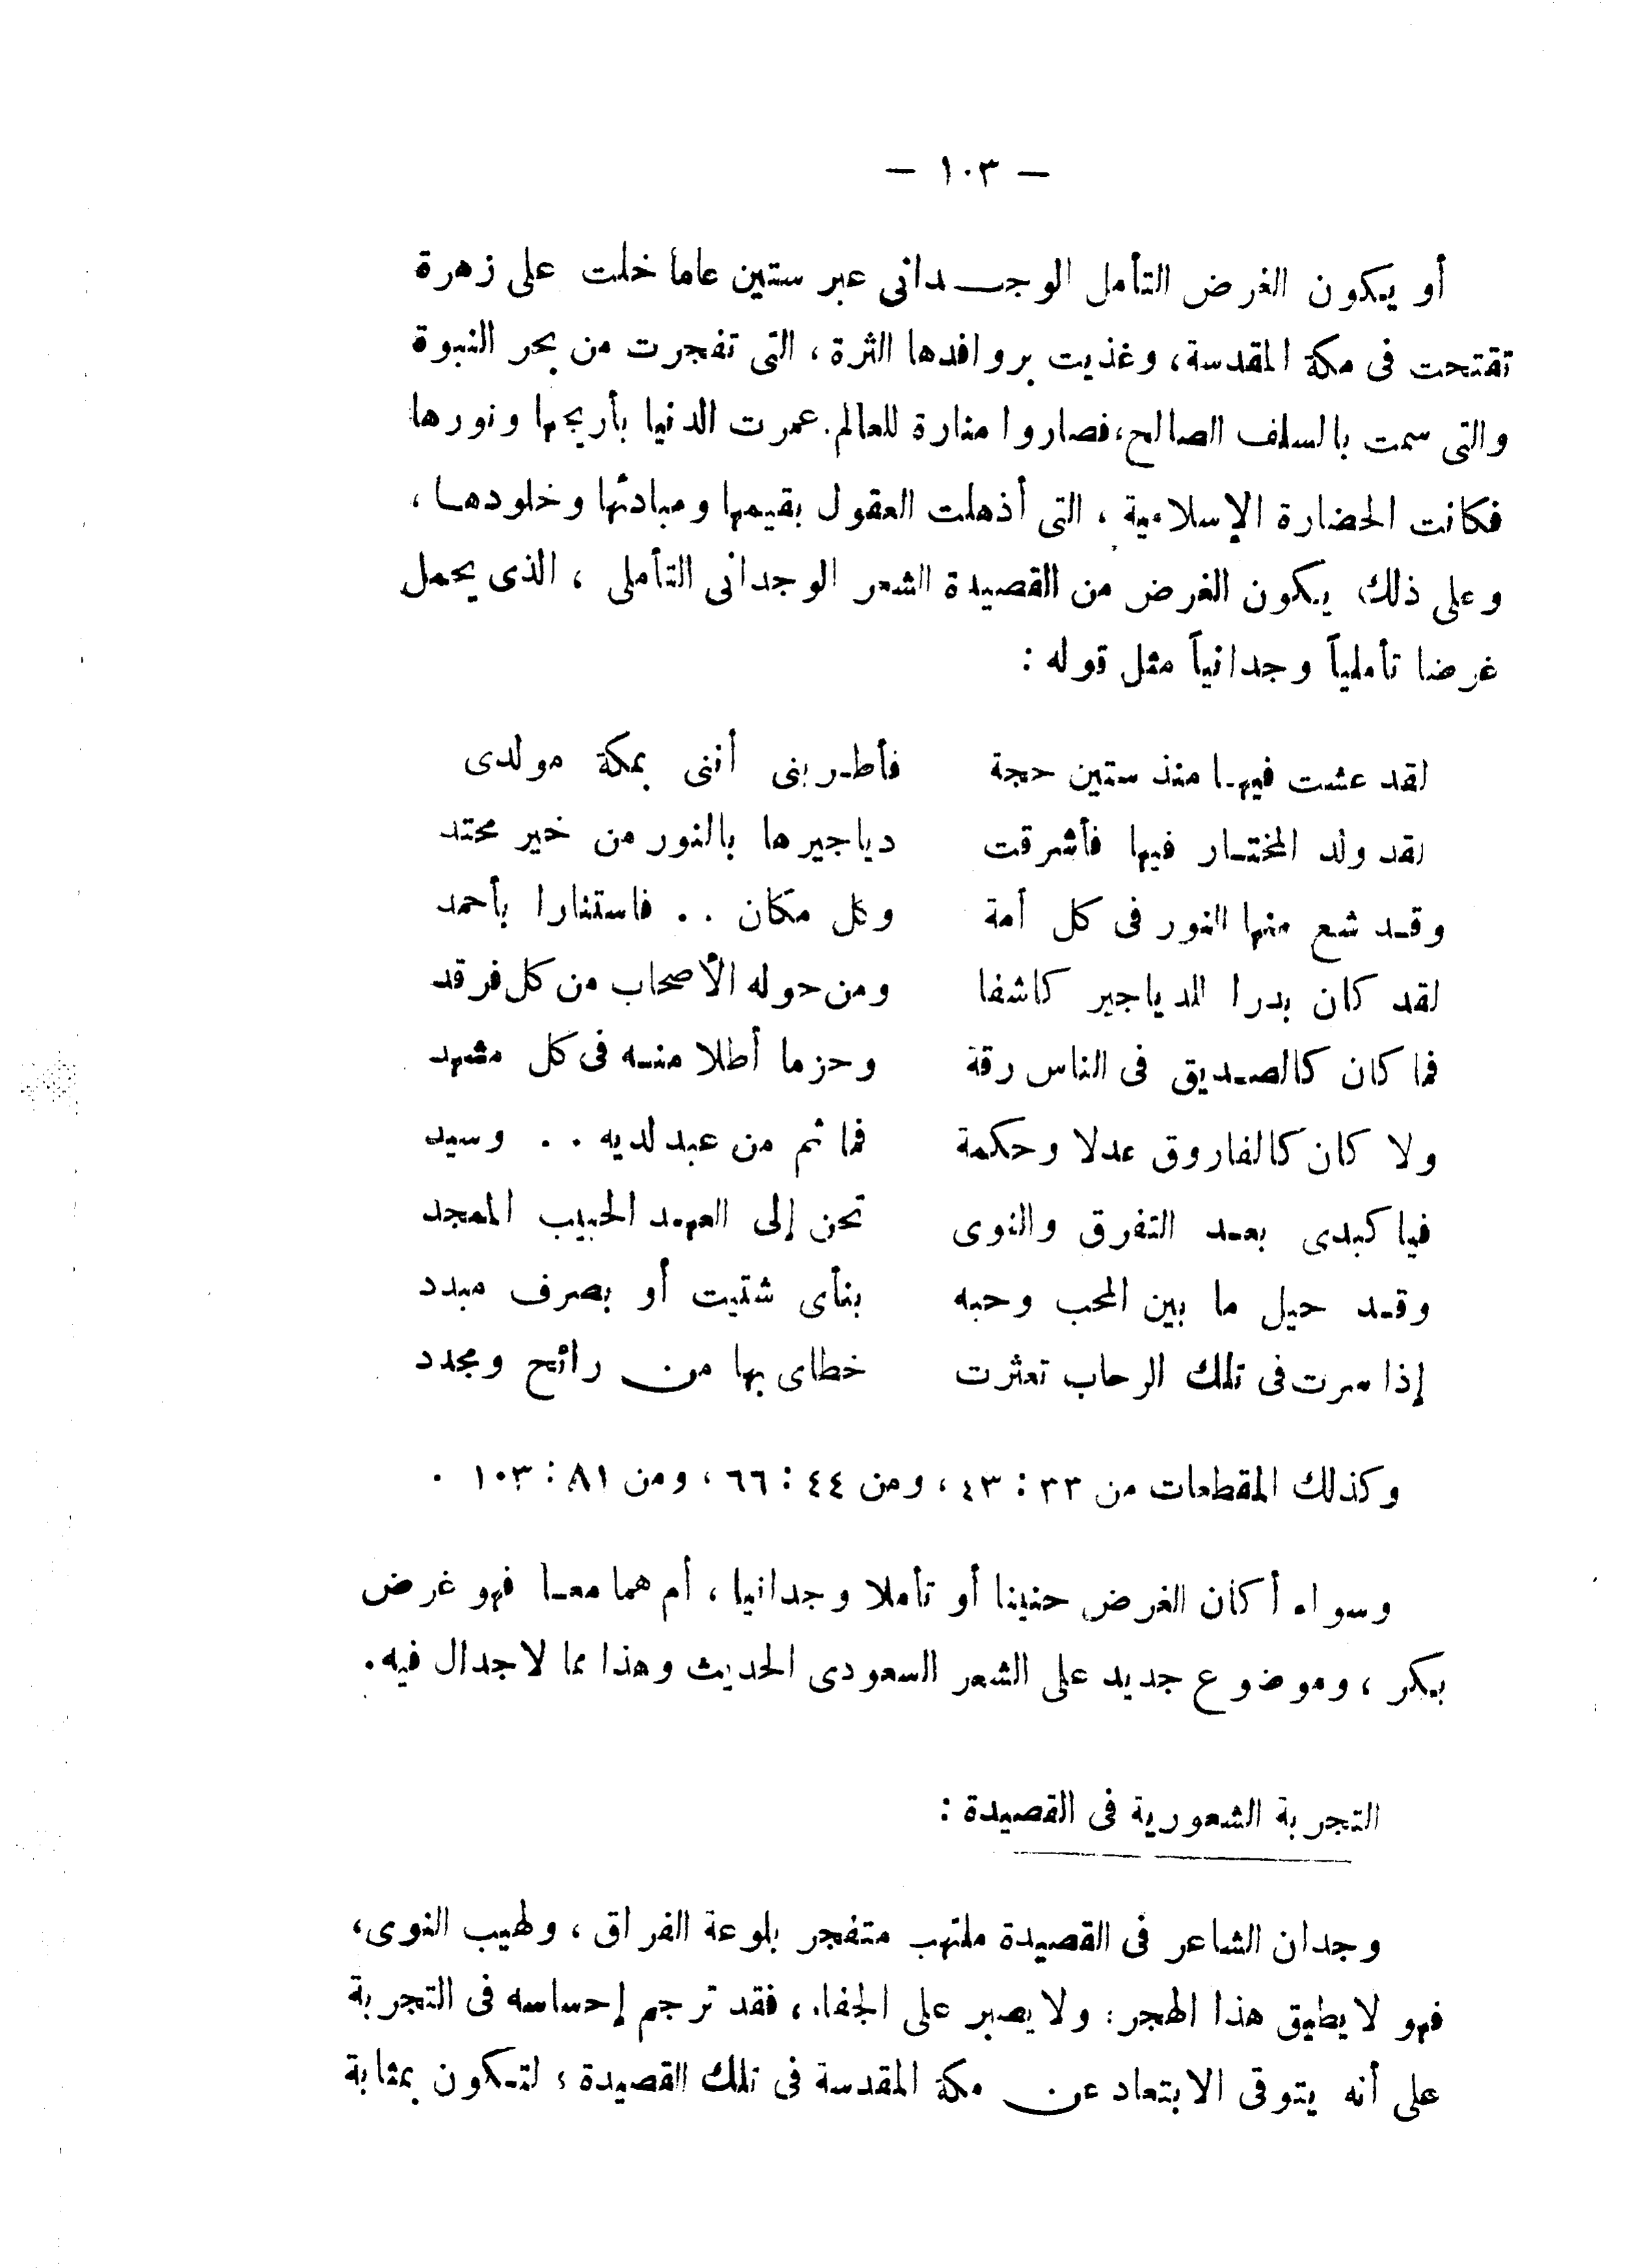 — ١٠٣ —
أو يكون الغرض التأمل الوجدانى عبر ستين عاما خلت على زهرة
تقتحت فى مكة المقدسة، وغذيت بروافدها الثرة، التى تفجرت من بحر النبوة
والتى سمت بالسلف الصالح، فصاروا منارة للعالم. عمرت الدنيا بأريجها ونورها
فكانت الحضارة الإسلامية، التى أذهلت العقول بقيمها ومبادئها وخلودها،
وعلى ذلك يكون الغرض من القصيدة الشعر الوجدانى التأملى، الذى يحمل
غرضا تأملياً وجدانياً مثل قوله:
لقد عشت فيها منذ ستين حجة فأطربنى أننى بمكة مولدى
لقد ولد المختار فيها فأشرقت دياجيرها بالنور من خير محتد
وقد شع منها النور فى كل أمة وكل مكان .. فاستنارا بأحمد
لقد كان بدرا للدياجير كاشفا ومن حوله الأصحاب من كل فرقد
فما كان كالصديق فى الناس رقة وحزما أطلا منه فى كل مشهد
ولا كان كالفاروق عدلا وحكمة فما ثم من عبد لديه .. وسيد
فيا كبدى بعد التفرق والنوى تحن إلى العهد الحبيب الممجد
وقد حيل ما بين المحب وحبه بنأى شتيت أو بصرف مبدد
إذا سرت فى تلك الرحاب تعثرت خطاى بها من رائح ومجدد
وكذلك المقطعات من ٣٣ : ٤٣، ومن ٤٤ : ٦٦، ومن ٨١ : ١٠٣ .
وسواء أكان الغرض حنينا أو تأملا وجدانيا، أم هما معا فهو غرض
بكر، وموضوع جديد على الشعر السعودى الحديث وهذا مما لا جدال فيه.
التجربة الشعورية فى القصيدة:
وجدان الشاعر فى القصيدة ملتهب متفجر بلوعة الفراق، ولهيب النوى،
فهو لا يطيق هذا الهجر: ولا يصبر على الجفاء، فقد ترجم إحساسه فى التجربة
على أنه يتوقى الابتعاد عن مكة المقدسة فى تلك القصيدة؛ لتكون بمثابة